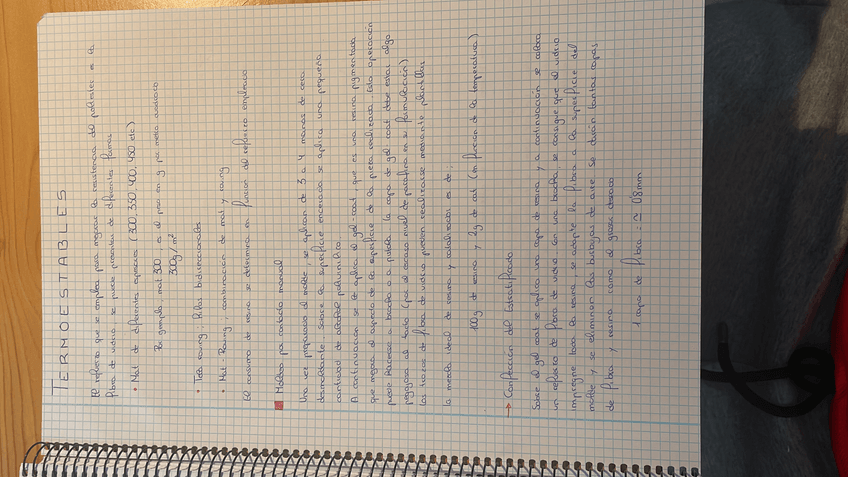 TERMOESTABLES
El refuerzo que se emplea para mejorar la resistencia del poliester es la
fibra de vidrio, se puede presentar de diferentes formas
• Mat de diferentes espesores (300, 350, 400, 450 etc)
Por ejemplo, mat 300, es el peso en g por metro cuadrado
300g/m²
• Tela roving; hilos bidireccionados
• Mat Roving; combinación de mat y roving
El consumo de resina se determina en función del refuerzo empleado
Moldeo por contacto manual
Una vez preparado el molde, se aplican de 3 a 4 manos de cera
desmoldeante. Sobre la superficie encerada se aplica una pequeña
cantidad de alcohol polivinílico
A continuación se le aplica el gel-coat que es una resina pigmentada
que mejora el aspecto de la superficie de la pieza realizada. Esta operación
puede hacerse a brocha o a pistola. La capa de gel coat debe estar algo
pegajosa al tacto (por el escaso nivel de parafina en su formulación)
Los trozos de fibra de vidrio pueden realizarse mediante plantillas
La mezcla ideal de resina y catalizador es de:
100g de resina y 2g de cat (en función de la temperatura)
→ Confección del Estratificado
Sobre el gel coat se aplica una capa de resina y a continuación se coloca
un refuerzo de fibra de vidrio con una brocha, se consigue que el vidrio
impregne toda la resina, se adapte la fibra a la superficie del
molde y se eliminen las burbujas de aire se darán tantas capas
de fibra y resina como el grosor deseado
1 capa de fibra: ≃ 0'8mm